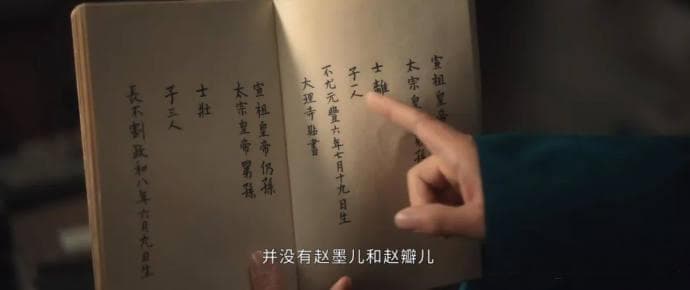 宣祖皇帝
太宗皇
士離
子一人
不尤元豐六年七月十九日生
大理寺點書
宣祖皇帝仍孫
太宗皇帝晜孫
士壯
子三人
長不劉政和八年六月九日生
并没有赵墨儿和赵瓣儿